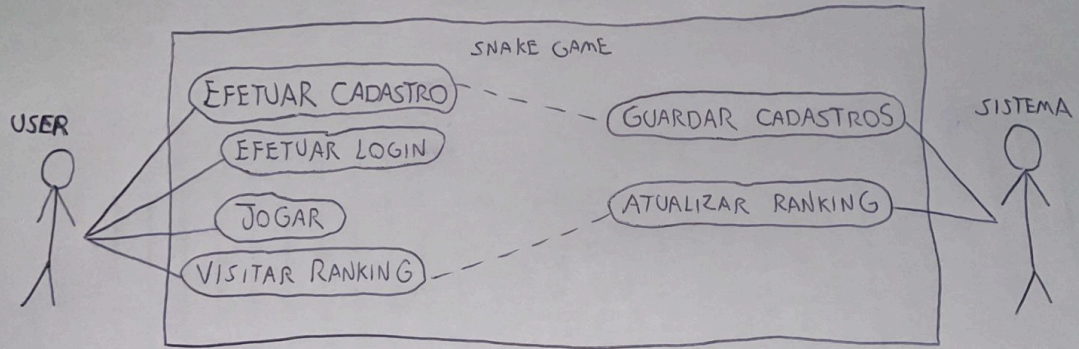 SNAKE GAME
USER
EFETUAR CADASTRO
EFETUAR LOGIN
JOGAR
VISITAR RANKING
GUARDAR CADASTROS
ATUALIZAR RANKING
SISTEMA